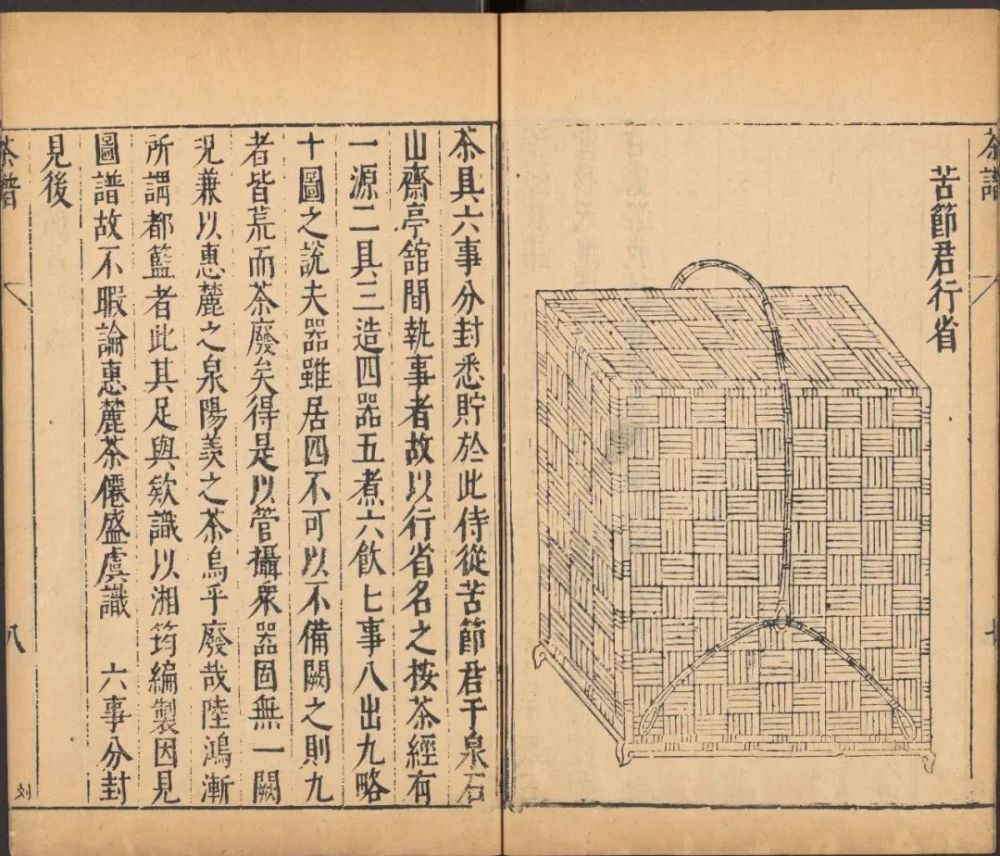 茶譜
苦節君行省
七
茶具六事分封悉貯於此侍從苦節君于泉石
山齋亭舘間執事者故以行省名之按茶經有
一源二具三造四器五煮六飲七事八出九略
十圖之說夫器雖居四不可以不備闕之則九
者皆荒而茶廢矣得是以管攝衆器固無一闕
况兼以惠麓之泉陽羡之茶烏乎廢哉陸鴻漸
所謂都籃者此其足與欵識以湘筠編製因見
圖譜故不暇論惠麓茶僊盛虞識　六事分封
見後
茶譜
八
刘